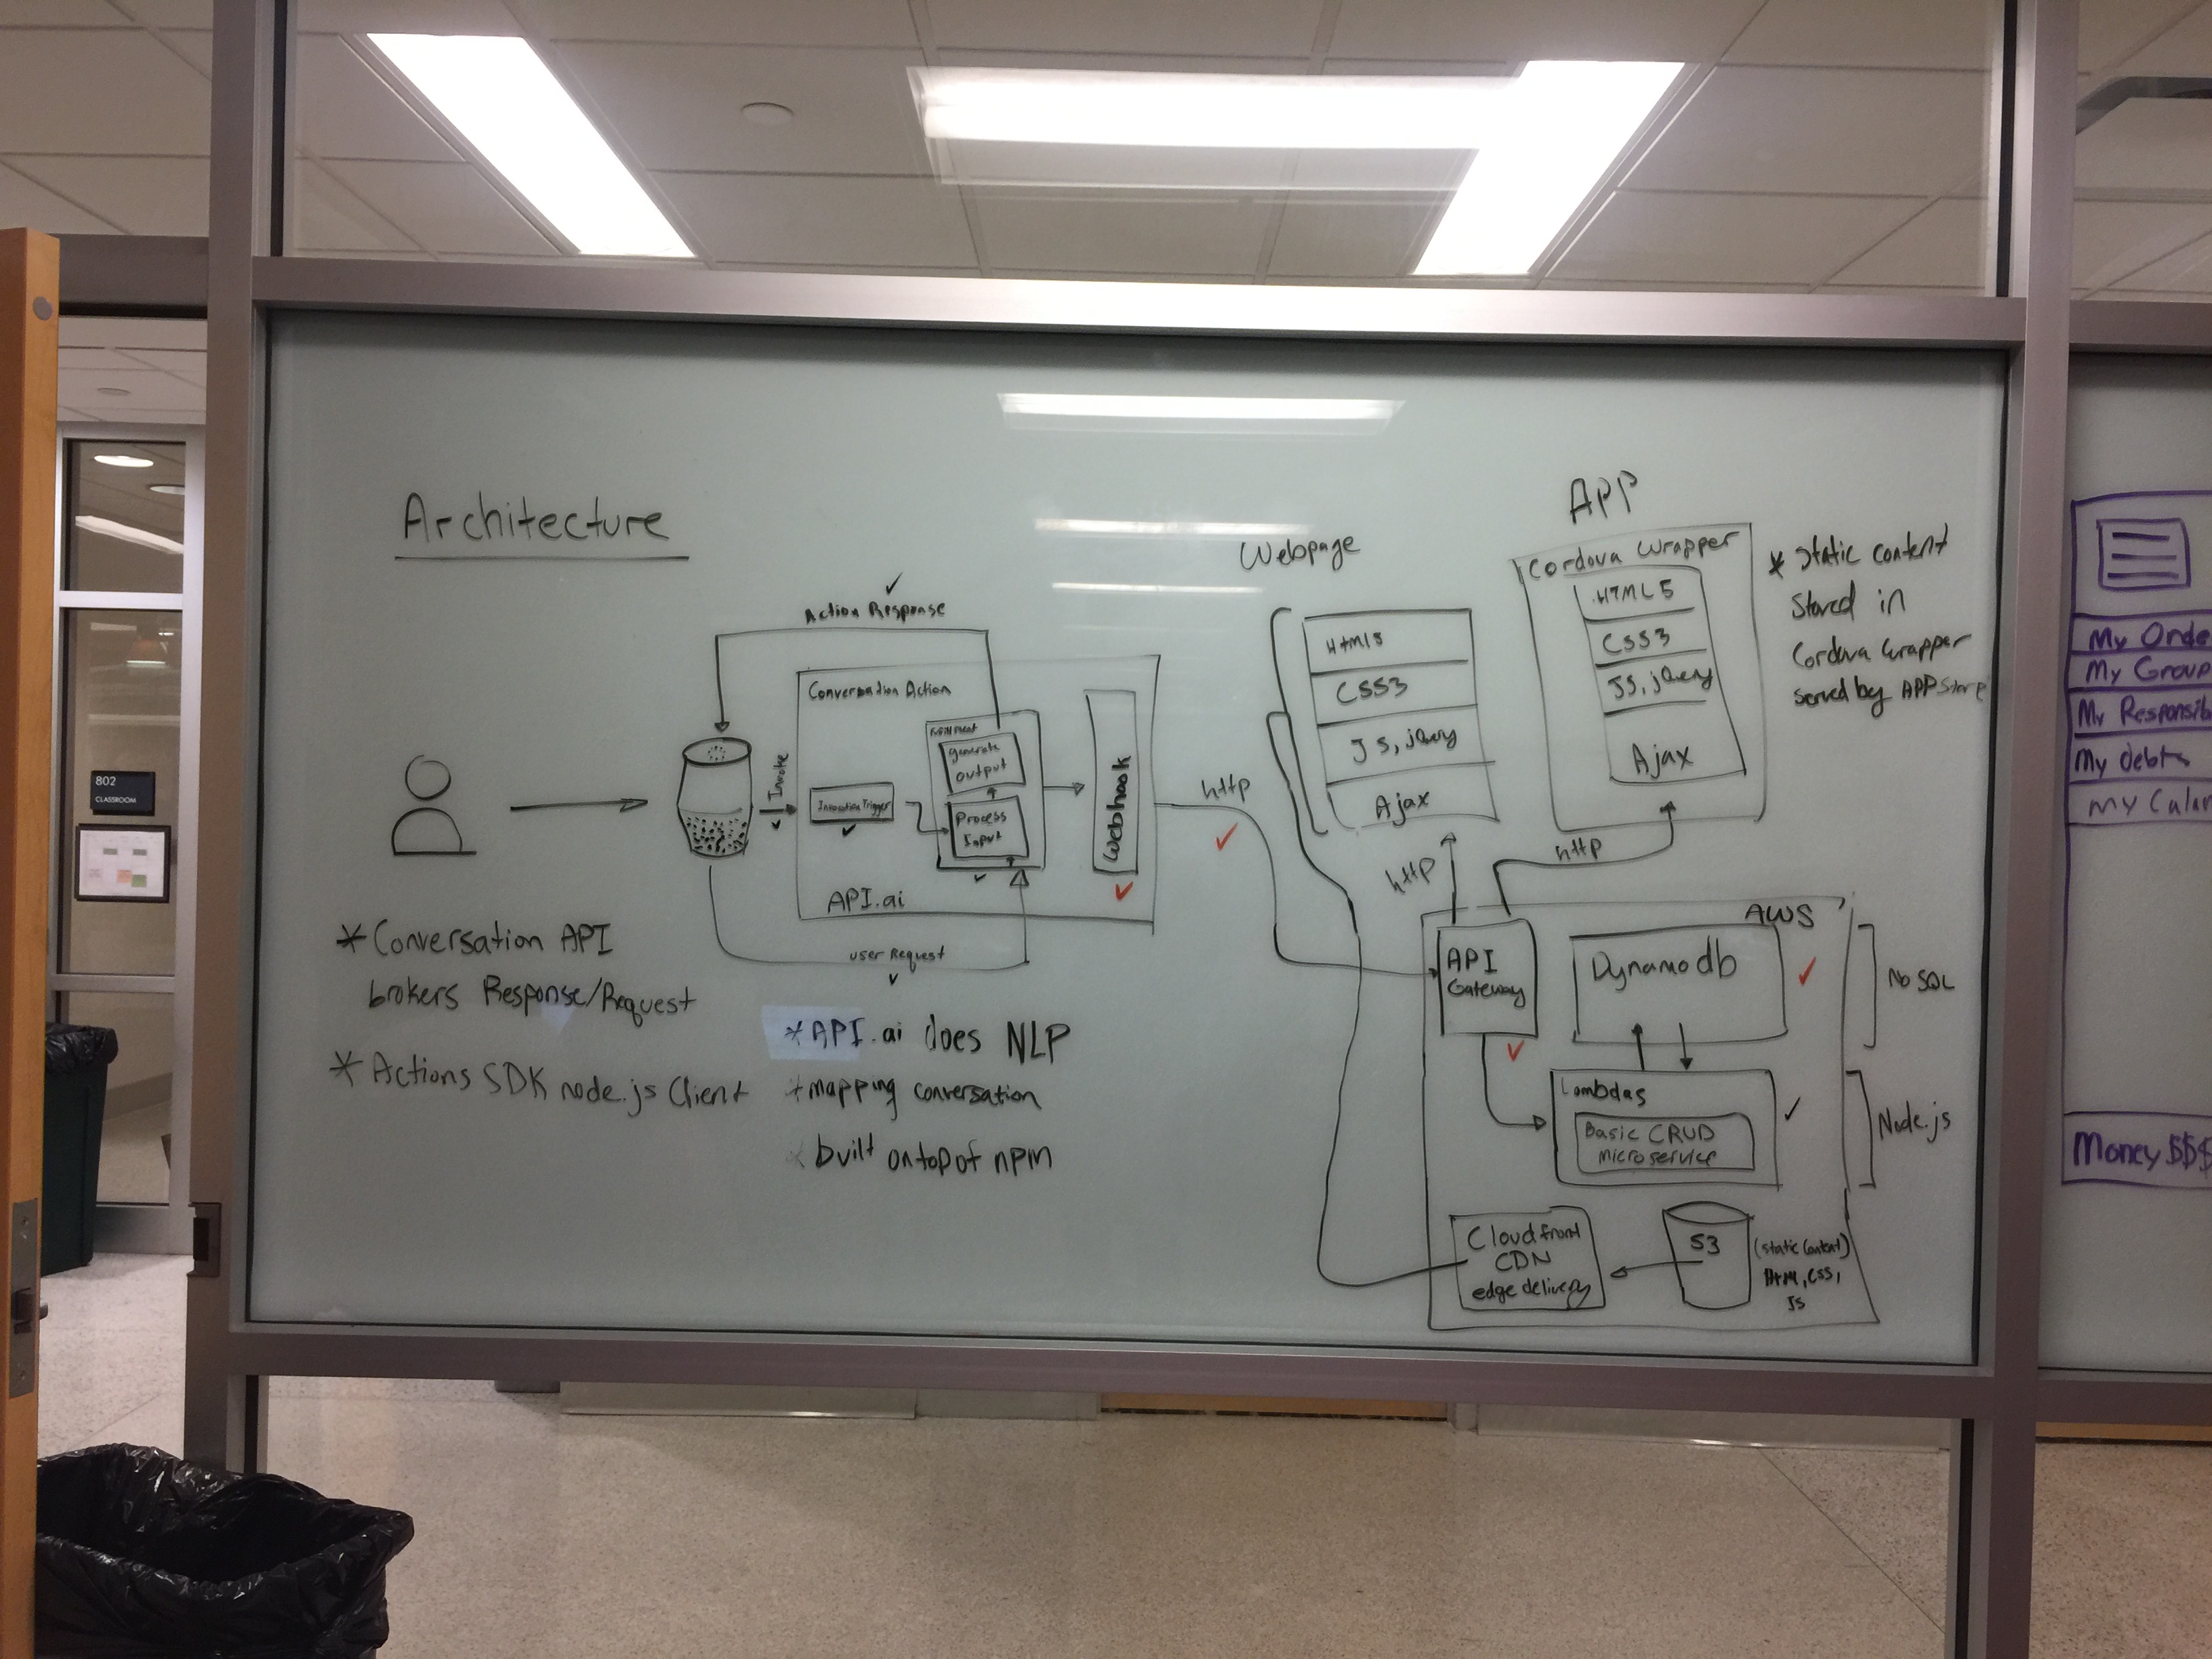 Architecture
✓
Action Response
Conversation Action
Fulfillment
generate
output
Invoke
✓
Invocation Trigger
✓
Process
Input
✓
Webhook
✓
API.ai
user Request
✓
http
✓
* Conversation API
brokers Response/Request
* Actions SDK node.js Client
* API.ai does NLP
* mapping conversation
* built ontop of npm
Webpage
Html5
CSS3
JS, jQuery
Ajax
APP
Cordova Wrapper
HTML5
CSS3
JS, jQuery
Ajax
* Static content
Stored in
Cordova Wrapper
served by APP Store
http
http
AWS
API
Gateway
✓
Dynamodb
✓
No SQL
Lambdas
Basic CRUD
microservice
✓
Node.js
Cloudfront
CDN
edge delivery
S3
(static content)
Htm, CSS,
JS
802
CLASSROOM
My Orde
My Group
My Responsib
My debts
My Calen
Money $$$